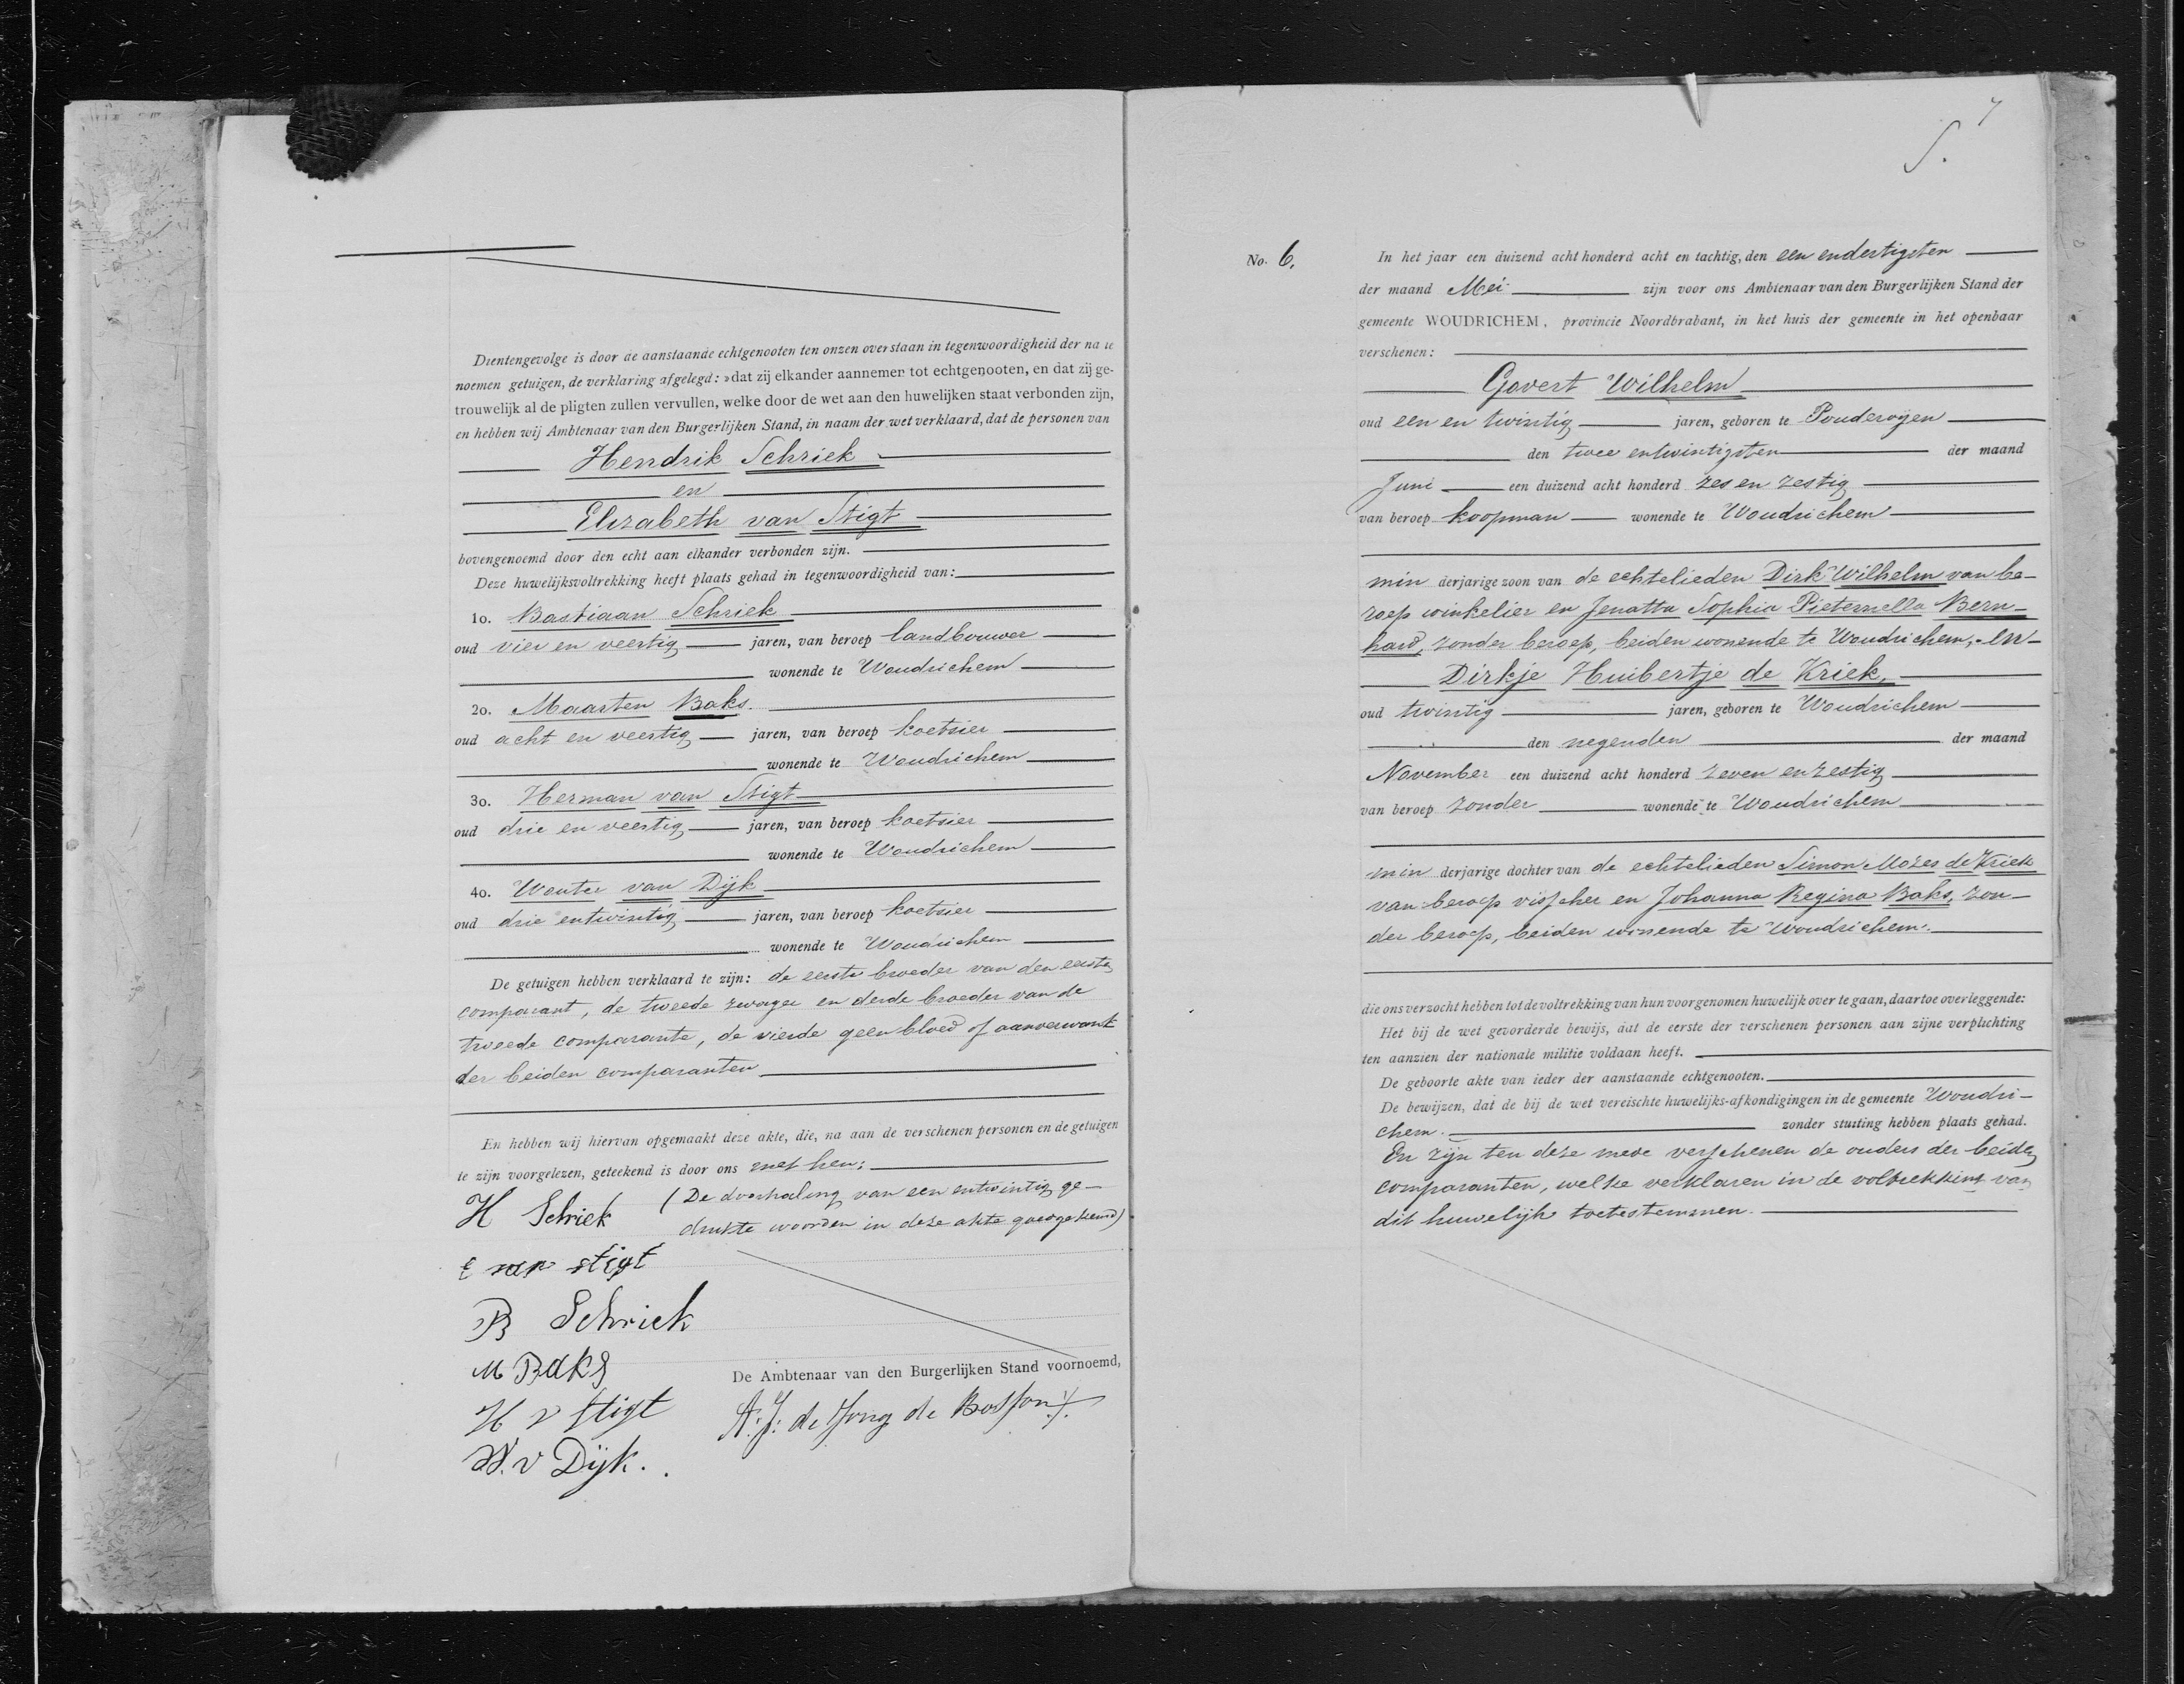 Dientengevolge is door de aanstaande echtgenooten ten onzen overstaan in tegenwoordigheid der na te
noemen getuigen, de verklaring afgelegd: »dat zij elkander aannemen tot echtgenooten, en dat zij ge-
trouwelijk al de pligten zullen vervullen, welke door de wet aan den huwelijken staat verbonden zijn,
en hebben wij Ambtenaar van den Burgerlijken Stand, in naam der wet verklaard, dat de personen van
Hendrik Schriek
en
Elizabeth van Stigt
bovengenoemd door den echt aan elkander verbonden zijn.
Deze huwelijksvoltrekking heeft plaats gehad in tegenwoordigheid van:
1o. Bastiaan Schriek
oud vier en veertig jaren, van beroep landbouwer
wonende te Woudrichem
2o. Maarten Baks
oud acht en veertig jaren, van beroep koetsier
wonende te Woudrichem
3o. Herman van Stigt
oud drie en veertig jaren, van beroep koetsier
wonende te Woudrichem
4o. Wouter van Dijk
oud drie entwintig jaren, van beroep koetsier
wonende te Woudrichem
De getuigen hebben verklaard te zijn: de eerste broeder van den eersten
comparant, de tweede zwager en derde broeder van de
tweede comparante, de vierde geen bloed of aanverwant
der beiden comparanten
En hebben wij hiervan opgemaakt deze akte, die, na aan de verschenen personen en de getuigen
te zijn voorgelezen, geteekend is door ons met hen:
(De doorhaling van een entwintig ge-
drukte woorden in deze akte goedgekeurd)
H Schriek
E van stigt
B Schriek
M Baks
H v stigt
W. v Dijk.
De Ambtenaar van den Burgerlijken Stand voornoemd,
A. J. de Jong de Bosson
7
No. 6.
In het jaar een duizend acht honderd acht en tachtig, den een endertigsten
der maand Mei zijn voor ons Ambtenaar van den Burgerlijken Stand der
gemeente WOUDRICHEM, provincie Noordbrabant, in het huis der gemeente in het openbaar
verschenen:
Govert Wilhelm
oud een en twintig jaren, geboren te Pouderoijen
den twee entwintigsten der maand
Juni een duizend acht honderd zes en zestig
van beroep koopman wonende te Woudrichem
min derjarige zoon van de echtelieden Dirk Wilhelm van be-
roep winkelier en Jenatta Sophia Pieternella Bern-
hard, zonder beroep, beiden wonende te Woudrichem, en
Dirkje Huibertje de Kriek,
oud twintig jaren, geboren te Woudrichem
den negenden der maand
November een duizend acht honderd zeven enzestig
van beroep zonder wonende te Woudrichem
min derjarige dochter van de echtelieden Simon Mozes de Kriek
van beroep visscher en Johanna Regina Baks, zon-
der beroep, beiden wonende te Woudrichem.
die ons verzocht hebben tot de voltrekking van hun voorgenomen huwelijk over te gaan, daartoe overleggende:
Het bij de wet gevorderde bewijs, dat de eerste der verschenen personen aan zijne verplichting
ten aanzien der nationale militie voldaan heeft.
De geboorte akte van ieder der aanstaande echtgenooten.
De bewijzen, dat de bij de wet vereischte huwelijks-afkondigingen in de gemeente Woudri-
chem. zonder stuiting hebben plaats gehad.
En zijn ten deze mede verschenen de ouders der beiden
comparanten, welke verklaren in de voltrekking van
dit huwelijk toetestemmen.